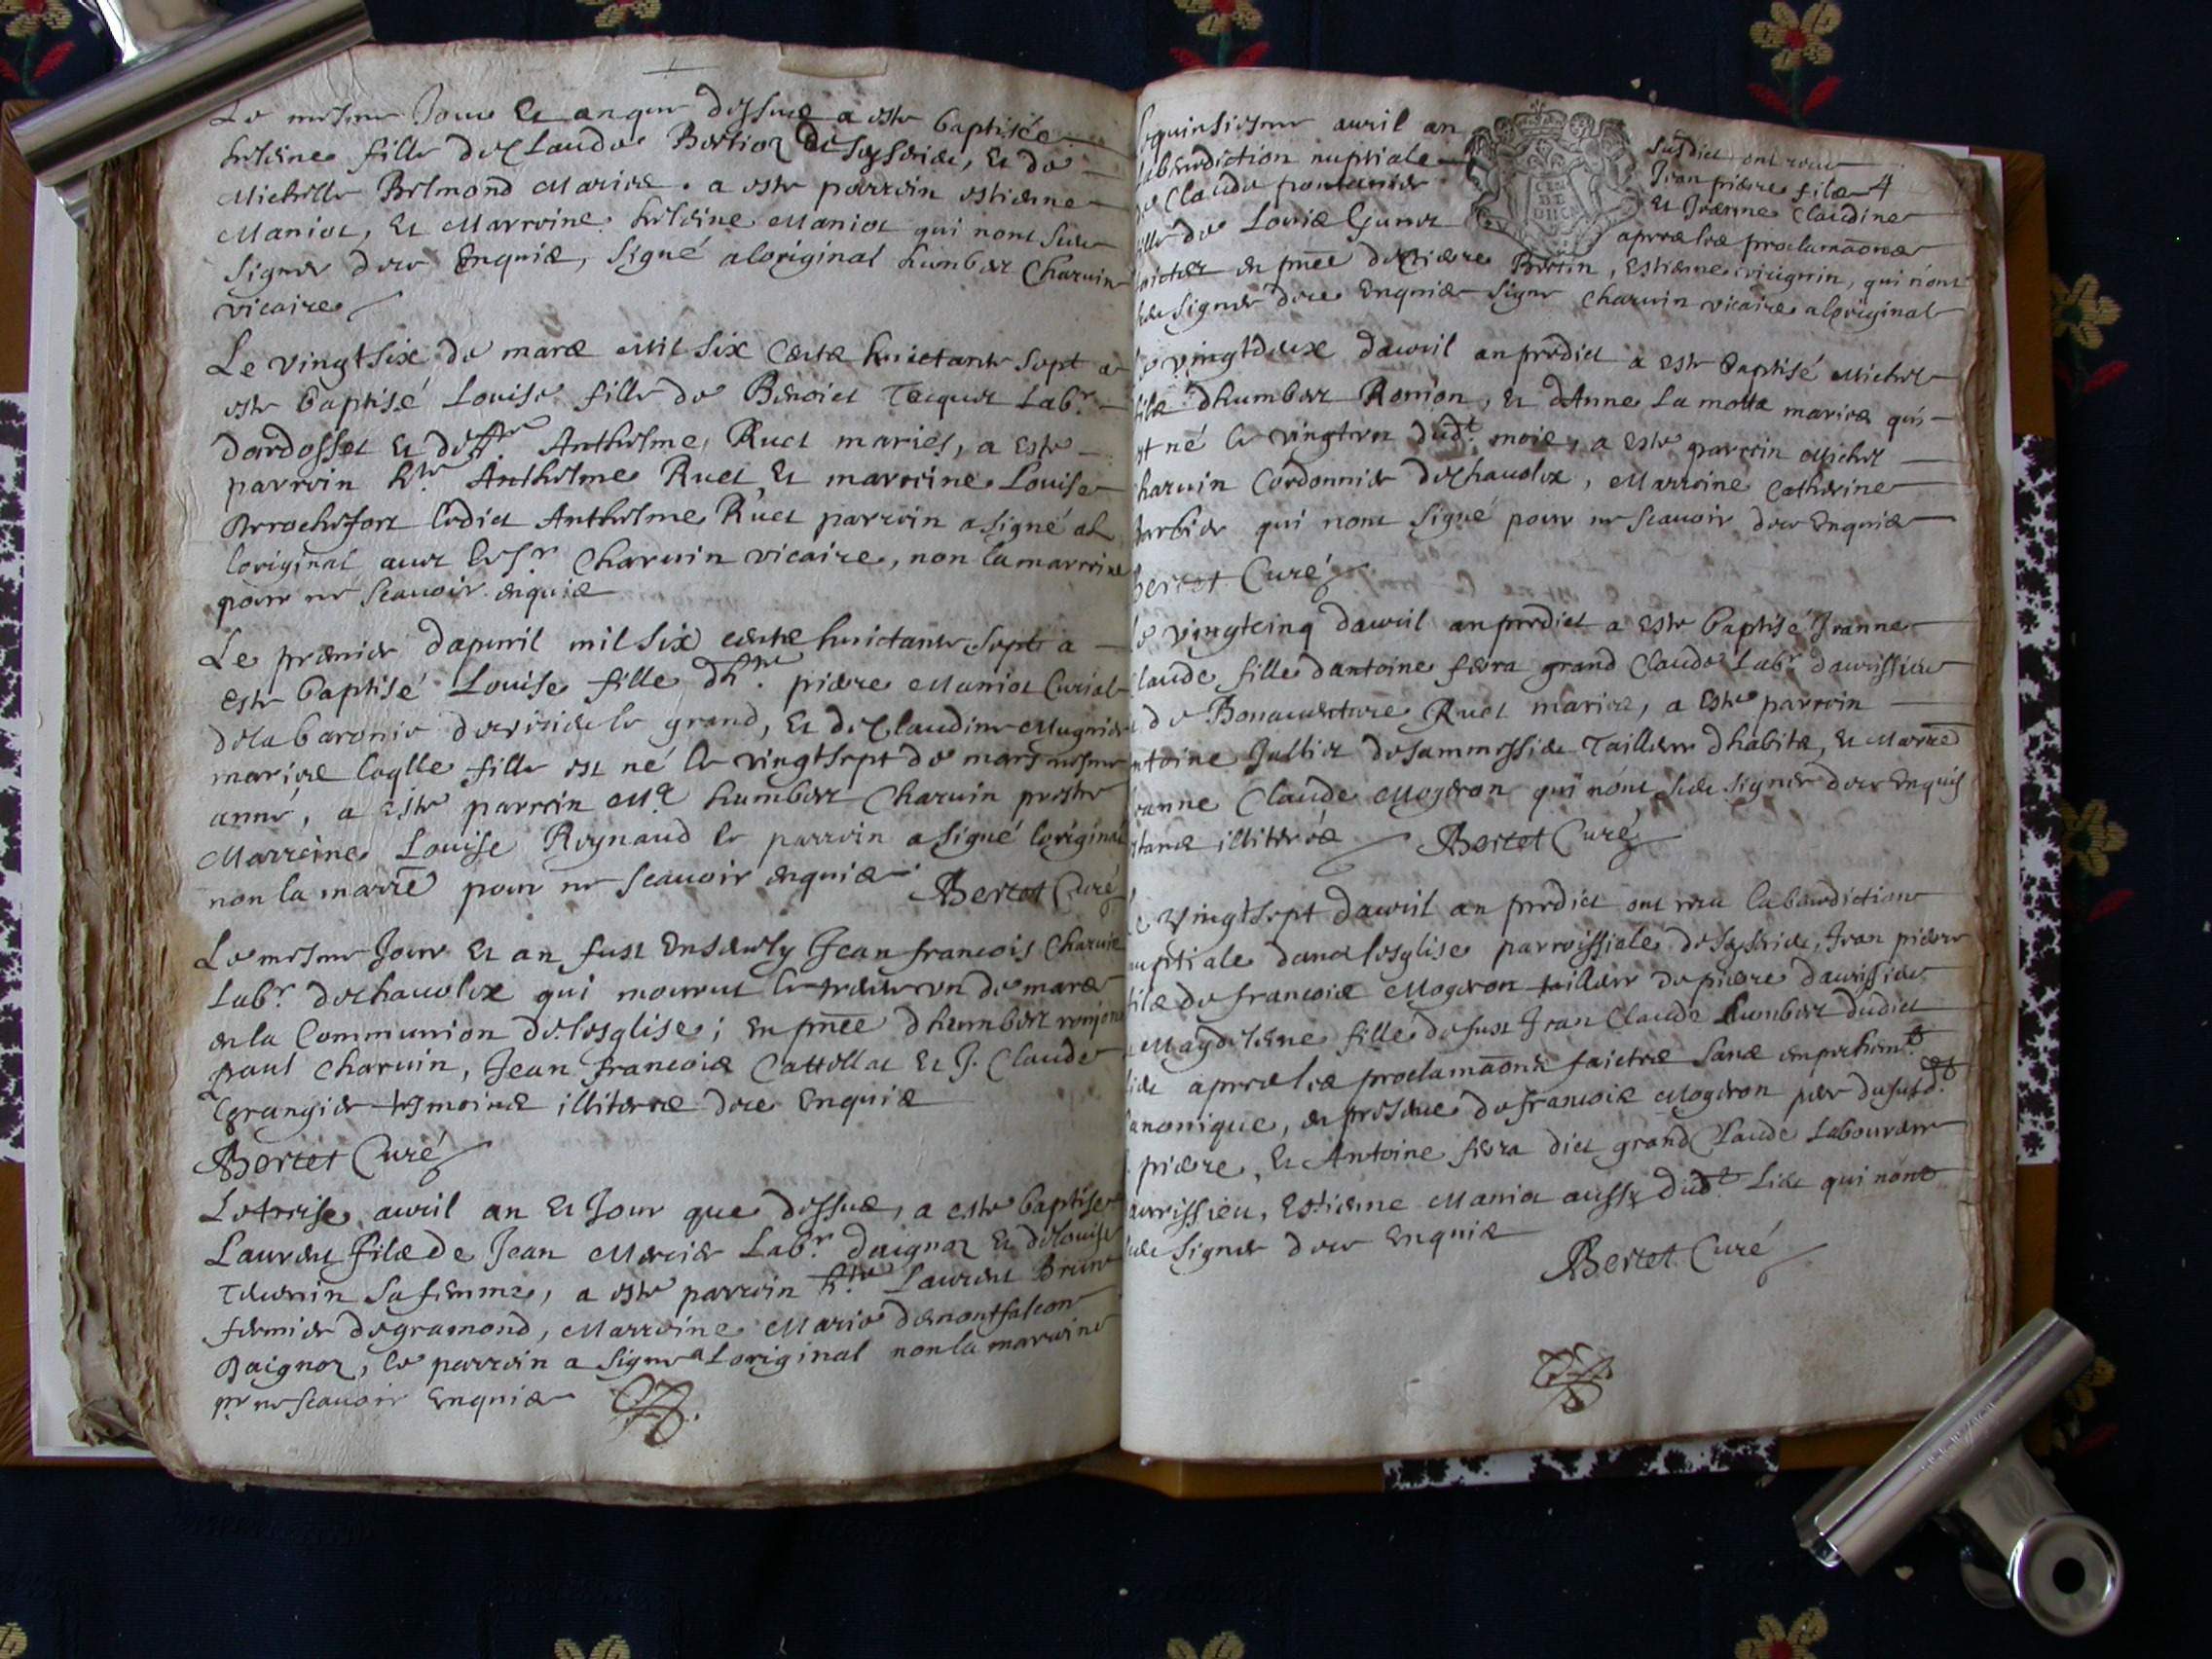 Le mesme Jour Et an que dessus a este baptisée
heleine fille de Claude Bertior de Seyserieu, Et de
Michelle Belmond Mariés. a este parrein estienne
Maniot, Et Marreine heleine Maniot qui nont Sceu
Signer de ce Enquis, Signé a loriginal humbert Charuin
vicaire
Le vingt six de mars Mil Six Cents huictante Sept a
este baptisé Louise fille de Benoict Tecquet Labr.
dardosset Et de Anthelme Ruet mariés, a este
parrein Anthelme Ruet Et marreine Louise
Derrochefort ledict Anthelme Ruet parrein a signé al
loriginal avec le Sr Charuin vicaire, non la marreine
pour ne Scauoir enquis
Le premier dapuril mil Six cents huictante Sept a
este baptisé Louise fille dhe. pierre Maniot Curial
de la baronie de virieu le grand, Et de Claudine Mugnier
mariés laqlle fille est né le vingt Sept de mars mesme
anné, a este parrein Me humbert Charuin prestre
Marreine Louise Reynaud le parrein a Signé loriginal
non la marre pour ne Scauoir enquis Bertet Curé
Le mesme Jour Et an fust Enseuely Jean francois Charuin
Labr. de chauolex qui mourut le trente vn de mars
en la Communion de lesglise; en pnce dhumbert ronjon
paul Charuin, Jean francois Cattellat Et J. Claude
grangier tesmoins illiteres de ce Enquis
Bertet Curé
Le treise auril an Et Jour que dessus, a este baptise
Laurent fils de Jean Mercier Labr. daignoz Et de louise
Teuenin Sa femme, a este parrein he. Laurent Brun
fermier de gramond, Marreine Marie demontfalcon
Daignoz, le parrein a Signe a Loriginal non la marreine
pr ne scauoir Enquis
Le quinsiesme auril an Susdict ont receu
la benediction nuptiale Jean pierre fils
de Claude pontannier Et Jeanne Claudine
fille de Louis Gunet apres les proclamaons
faictes en pnce de pierre Bertin, Estienne viuignin, qui nont
sceu signer de ce Enquis Signe Charuin vicaire a loriginal
Le vingt deux dauril an predict a este baptisé Michel
fils dhumbert Ronion, Et dAnne La motte mariés qui
est né le vingt vn dudt. mois, a este parrein Michel
Charuin Cordonnier de chauolex, Marreine Catherine
Barbier qui nont Signé pour ne Scauoir de ce Enquis
Bertet Curé
Le vingt cinq dauril an predict a este baptisé Jeanne
Claude fille dantoine fiera grand Claude Labr daurissieu
Et de Bonauenture Ruet mariés, a este parrein
Antoine Jullict de sammessieu Tailleur dhabits, Et Marre
Jeanne Claude Mogeron qui nont sceu signer de ce Enquis
Estants illiteres Bertet Curé
Le Vingt Sept dauril an predict ont receu la benediction
nuptiale dans lesglise parroissiale de Seyserieu, Jean pierre
fils de francois Mogeron tailleur de pierre daurissieu
Et Magdeleine fille de fust Jean Claude Humbert dudict
lieu apres les proclamaons faictes Sans empechemt
Canonique, en presence de francois Mogeron pere du susd.t
Jean pierre, Et Antoine fiera dict grand Claude Laboureur
daurissieu, Estienne Maniot aussy dudt. Lieu qui nont
sceu Signer de ce Enquis
Bertet Curé